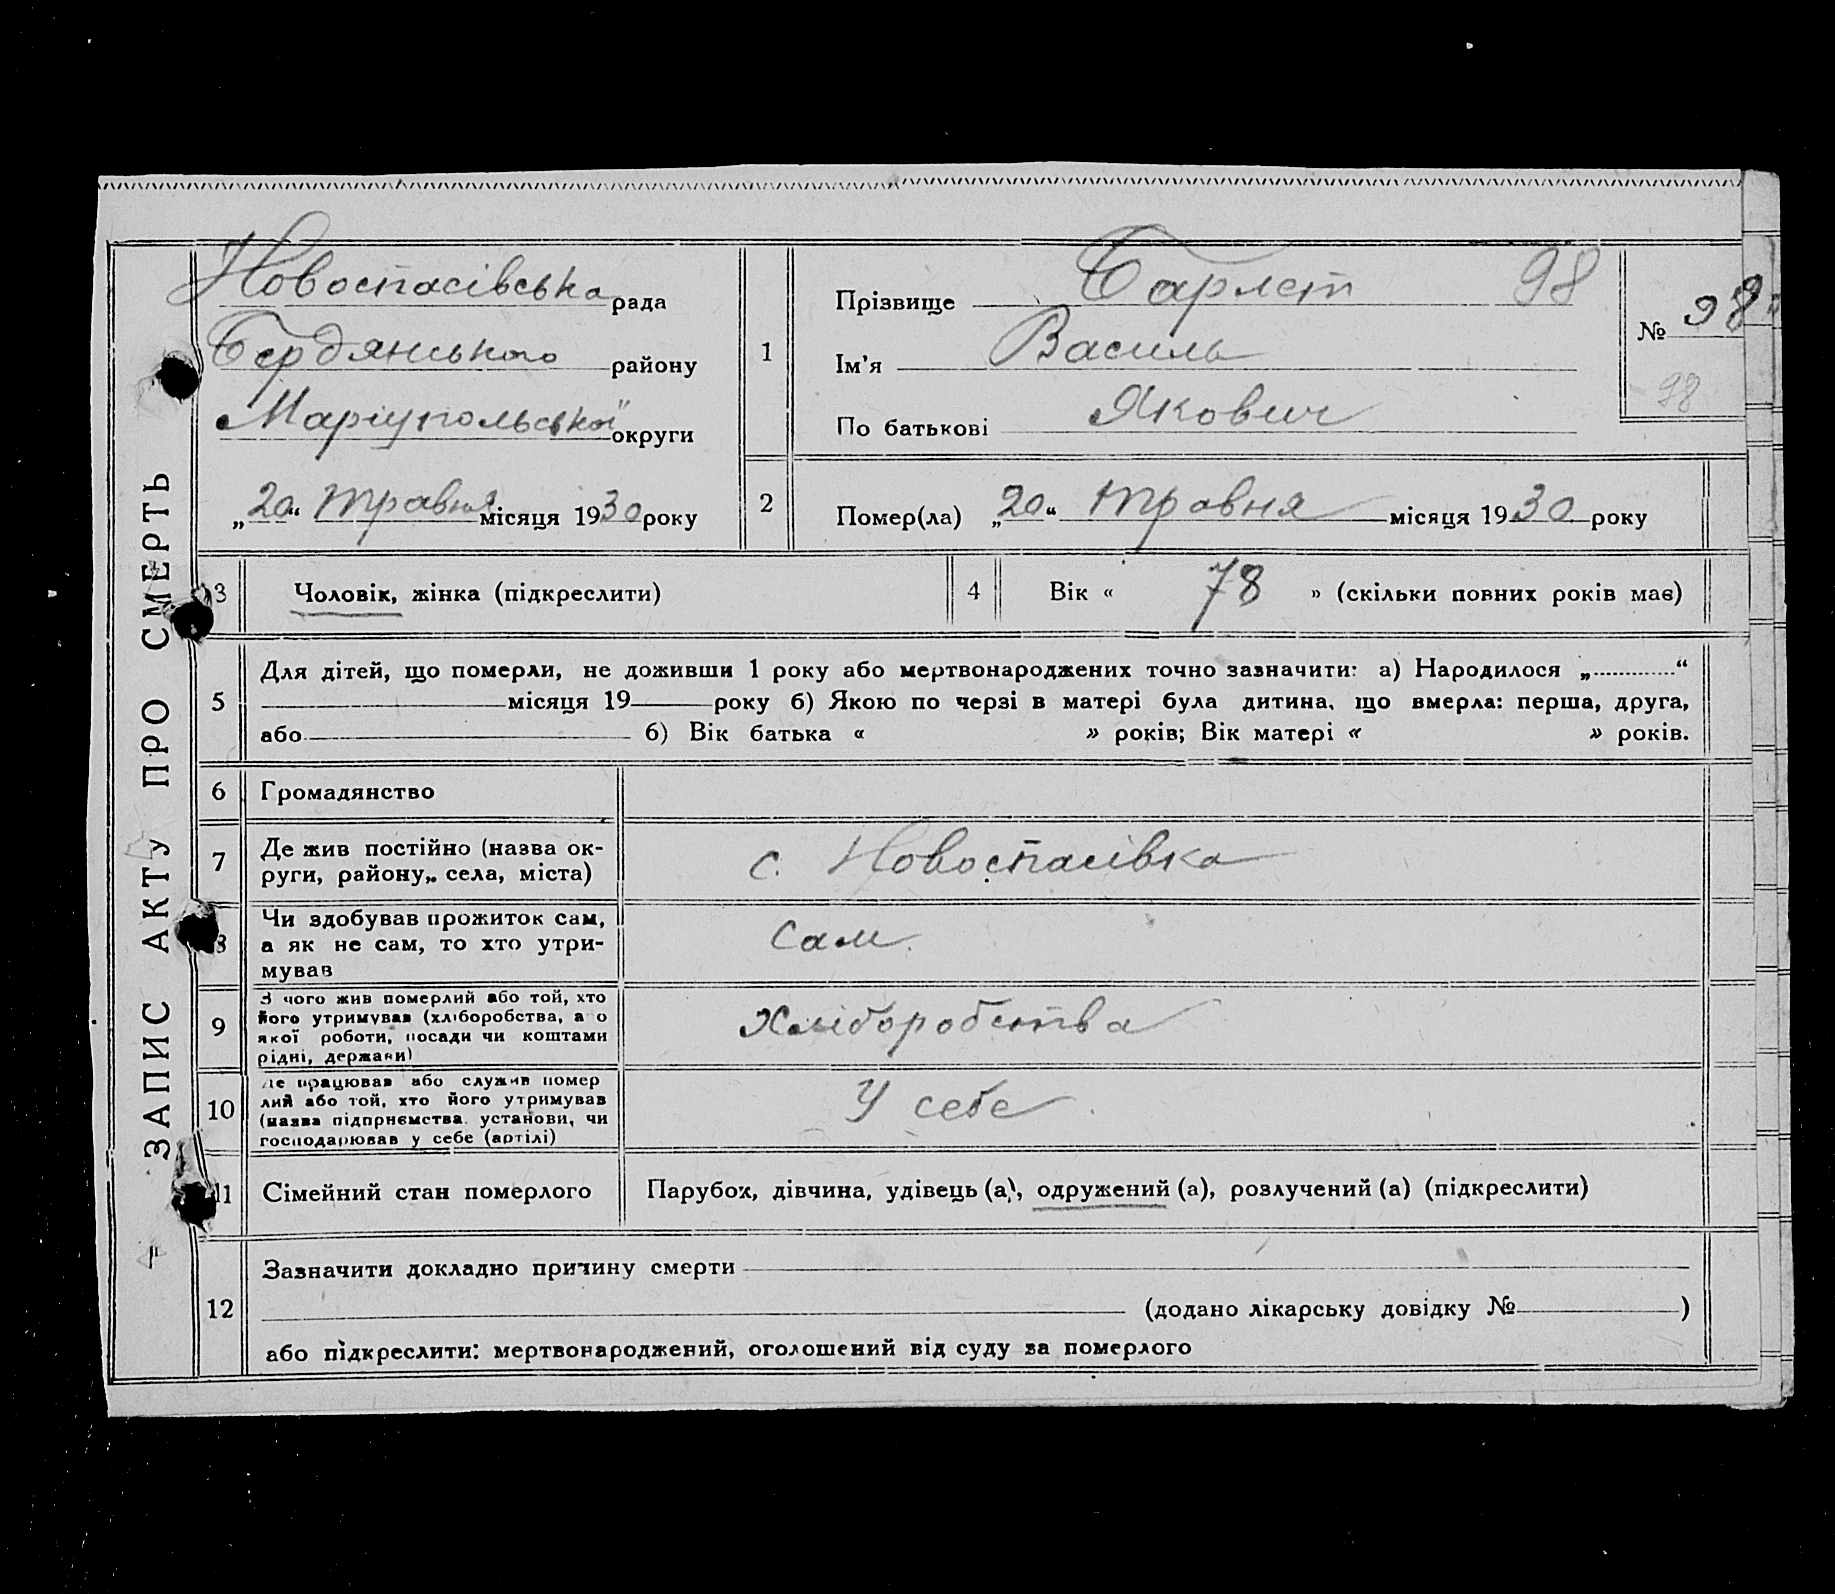 ЗАПИС АКТУ ПРО СМЕРТЬ
Новоспасівська рада
Бердянського району
Маріупольської округи
„20“ травня місяця 1930 року
1
Прізвище Барлет 98
Ім'я Василь
По батькові Якович
№ 98
98
2
Помер(ла) „20“ травня місяця 1930 року
3 Чоловік, жінка (підкреслити)
4 Вік « 78 » (скільки повних років має)
5
Для дітей, що померли, не доживши 1 року або мертвонароджених точно зазначити: а) Народилося „ “
місяця 19 року б) Якою по черзі в матері була дитина, що вмерла: перша, друга,
або б) Вік батька « » років; Вік матері « » років.
6 Громадянство
7
Де жив постійно (назва ок-
руги, району„ села, міста)
с. Новоспасівка
8
Чи здобував прожиток сам,
а як не сам, то хто утри-
мував
Сам.
9
З чого жив померлий або той, хто
його утримував (хліборобства, а о
якої роботи, посади чи коштами
рідні, держави)
Хліборобства
10
Де працював або служив помер
лий або той, хто його утримував
(назва підприємства. установи, чи
господарював у себе (артілі)
У себе
11 Сімейний стан померлого
Парубох, дівчина, удівець (а), одружений (а), розлучений (а) (підкреслити)
12
Зазначити докладно причину смерти
(додано лікарську довідку № )
або підкреслити: мертвонароджений, оголошений від суду за померлого